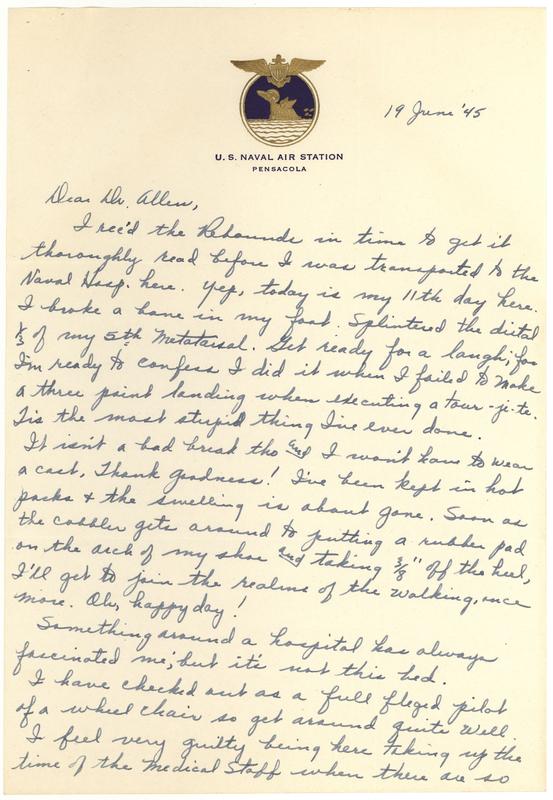 19 June '45
U. S. NAVAL AIR STATION
PENSACOLA
Dear Dr. Allen,
I rec'd the Rebounds in time to get it
thoroughly read before I was transported to the
Naval Hosp. here. Yep, today is my 11th day here.
I broke a bone in my foot. Splintered the distal
1/3 of my 5th Metatarsal. Get ready for a laugh, for
I'm ready to confess I did it when I failed to make
a three point landing when executing a tour-je-te.
Tis the most stupid thing I've ever done.
It isn't a bad break tho and I won't have to wear
a cast. Thank goodness! I've been kept in hot
packs & the swelling is about gone. Soon as
the cobbler gets around to putting a rubber pad
on the arch of my shoe and taking 3/8" off the heel,
I'll get to join the realms of the walking, once
more. Oh, happy day!
Something around a hospital has always
fascinated me; but it's not this bed.
I have checked out as a full fleged pilot
of a wheel chair so get around quite well.
I feel very guilty being here taking up the
time of the Medical Staff when there are so